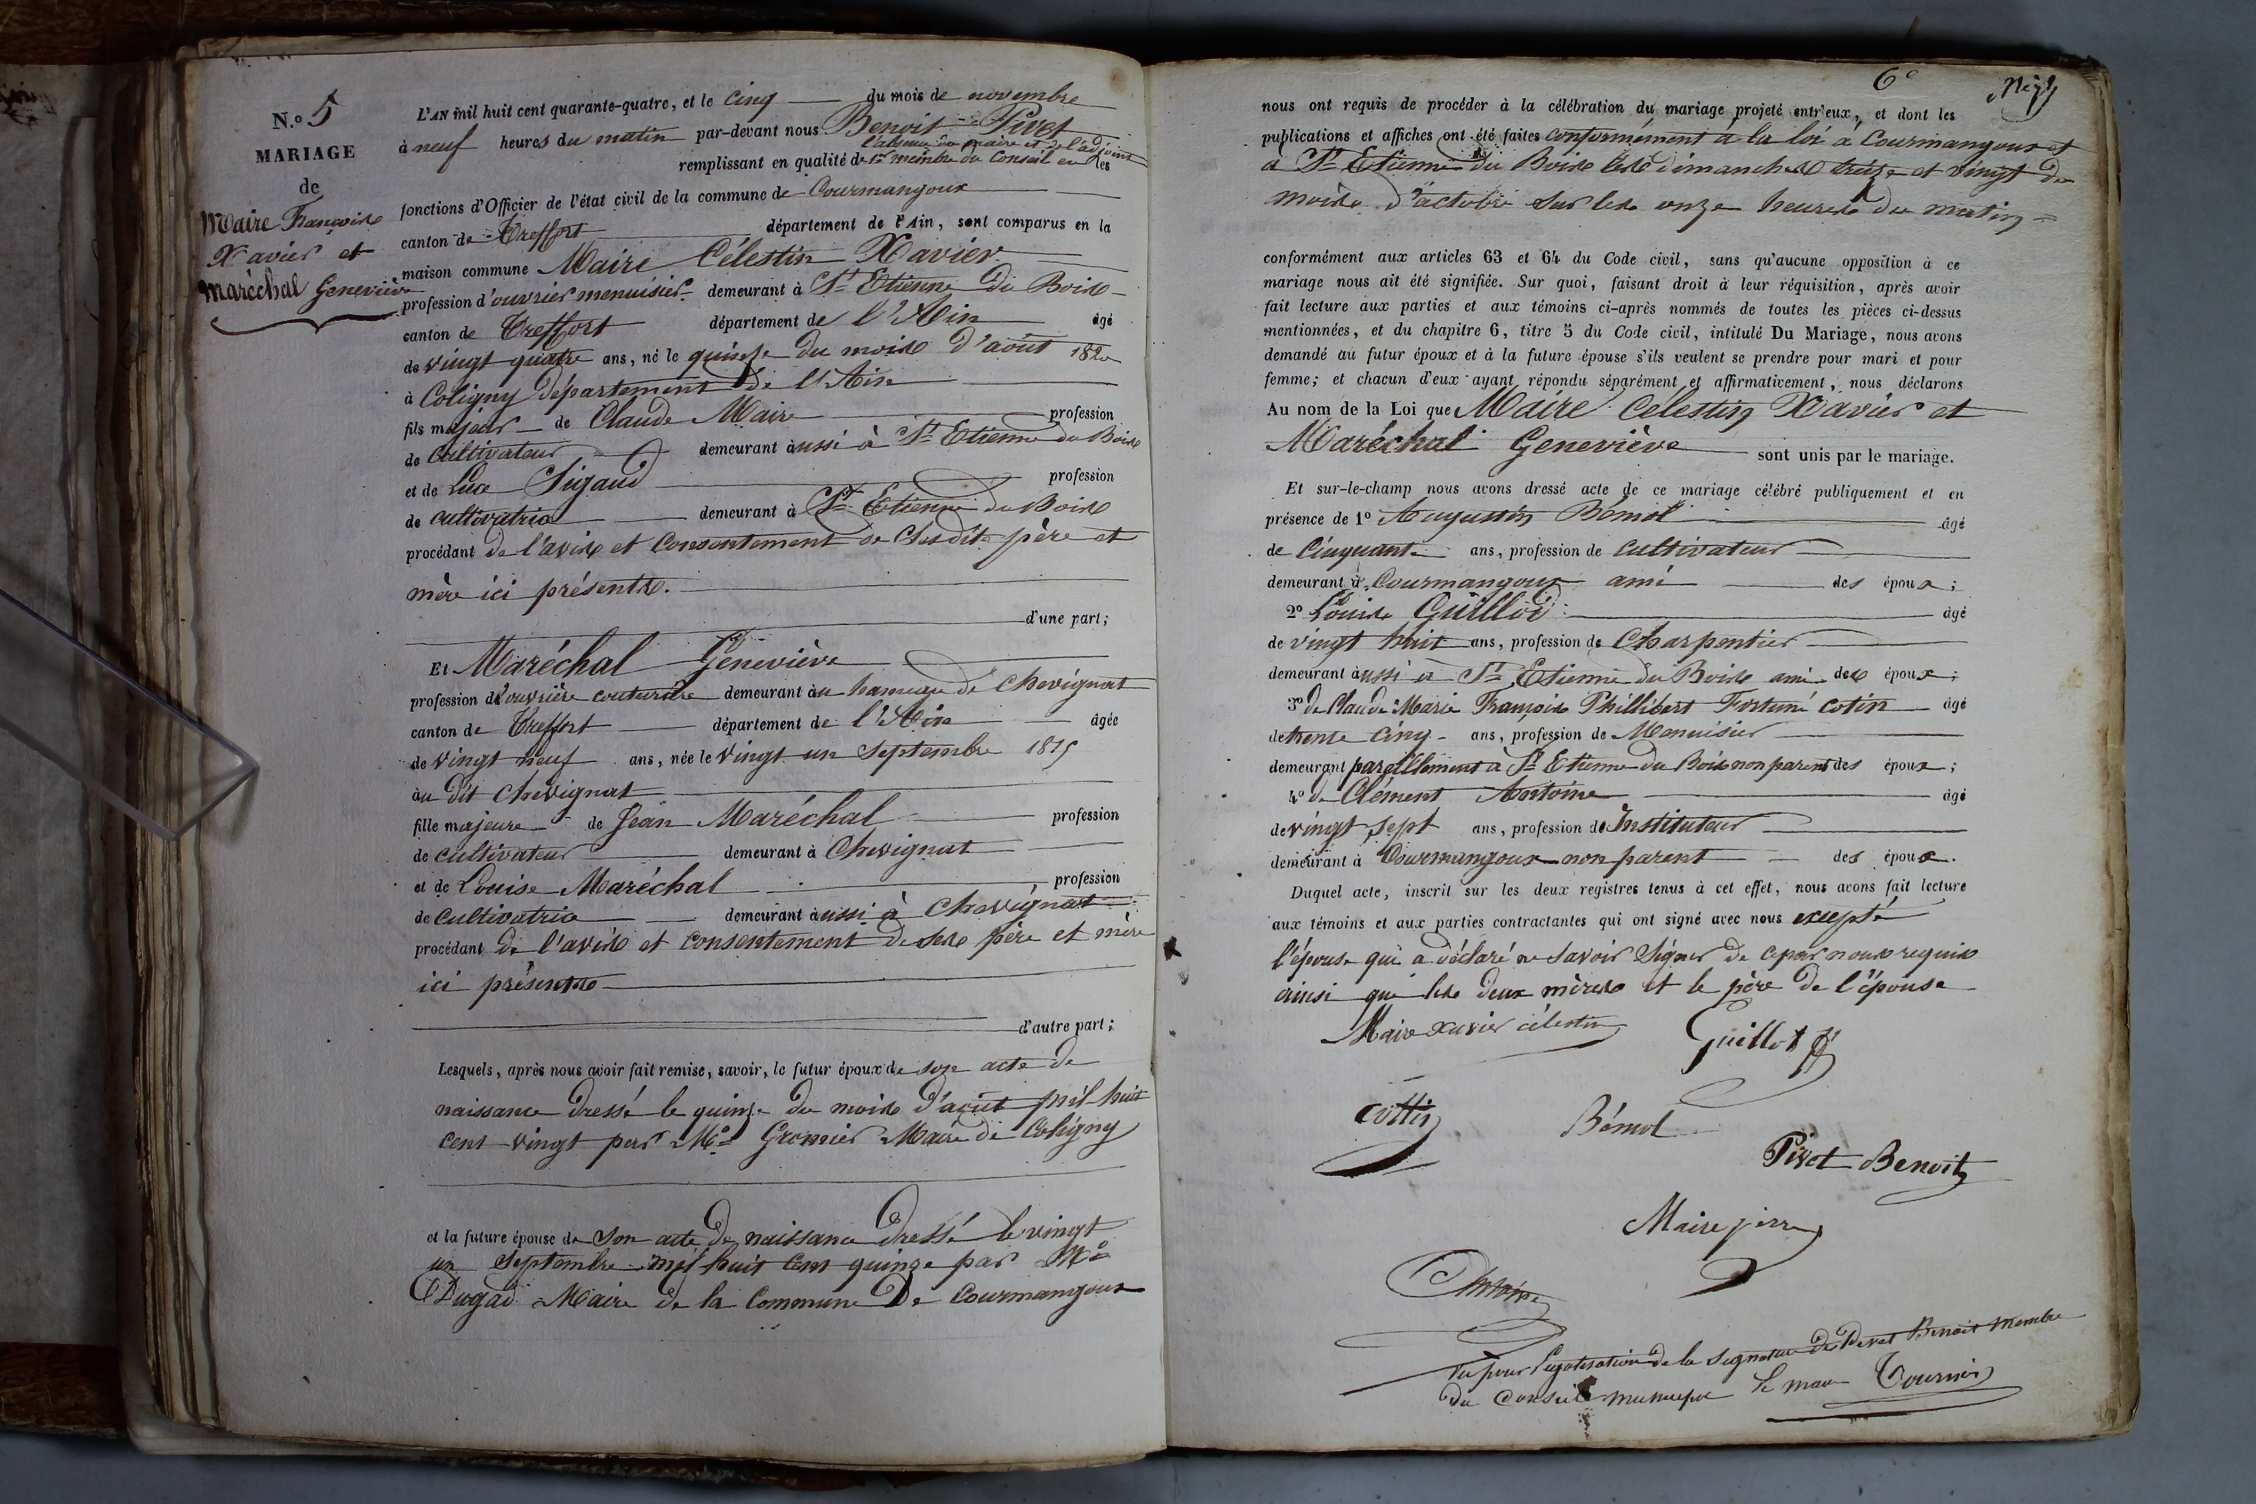 N.o 5
MARIAGE
de
Maire François
Xavier et
Maréchal Geneviève
L'AN mil huit cent quarante-quatre, et le cinq du mois de novembre
à neuf heures du matin par-devant nous Benoit Pivet
l'absence du maire et de l'adjoint
remplissant en qualité de 1er membre du Conseil en les
fonctions d'Officier de l'état civil de la commune de Courmangoux
canton de Treffort département de l'Ain, sont comparus en la
maison commune Maire Célestin Xavier
profession d'ouvrier menuisier demeurant à St Etienne du Bois
canton de Treffort département de l'Ain âgé
de vingt quatre ans, né le quinze du mois d'août 1820
à Coligny département de l'Ain
fils majeur de Claude Maire profession
de cultivateur demeurant aussi à St Etienne du Bois
et de Luce Sigaud profession
de cultivatrice demeurant à St Etienne du Bois
procédant de l'avis et consentement de ses dits père et
mère ici présents.
d'une part;
Et Maréchal Geneviève
profession d'ouvrière couturière demeurant au hameau de Chevignat
canton de Treffort département de l'Ain âgée
de vingt neuf ans, née le vingt un septembre 1815
au dit Chevignat
fille majeure de Jean Maréchal profession
de cultivateur demeurant à Chevignat
et de Louise Maréchal profession
de cultivatrice demeurant aussi à Chevignat
procédant de l'avis et consentement de ses père et mère
ici présents
d'autre part;
Lesquels, après nous avoir fait remise, savoir, le futur époux de son acte de
naissance dressé le quinze du mois d'août mil huit
cent vingt par Mr Gromier Maire de Coligny
et la future épouse de son acte de naissance dressé le vingt
un septembre mil huit cent quinze par Mr
Dugad Maire de la commune De Courmangoux
6e
nous ont requis de procéder à la célébration du mariage projeté entr'eux, et dont les
publications et affiches ont été faites conformément à la loi à Courmangoux et
à St Etienne du Bois les dimanches treize et vingt du
mois d'octobre sur les onze heures du matin
conformément aux articles 63 et 64 du Code civil, sans qu'aucune opposition à ce
mariage nous ait été signifiée. Sur quoi, faisant droit à leur réquisition, après avoir
fait lecture aux parties et aux témoins ci-après nommés de toutes les pièces ci-dessus
mentionnées, et du chapitre 6, titre 5 du Code civil, intitulé Du Mariage, nous avons
demandé au futur époux et à la future épouse s'ils veulent se prendre pour mari et pour
femme; et chacun d'eux ayant répondu séparément et affirmativement, nous déclarons
Au nom de la Loi que Maire Celestin Xavier et
Maréchal Geneviève sont unis par le mariage.
Et sur-le-champ nous avons dressé acte de ce mariage célébré publiquement et en
présence de 1o Augustin Bémol âgé
de cinquante ans, profession de cultivateur
demeurant à Courmangoux ami des époux;
2o Louis Guillod âgé
de vingt huit ans, profession de Charpentier
demeurant aussi à St Etienne du Bois ami des époux;
3o de Claude Marie François Phillibert Fortuné Cotin âgé
de trente cinq ans, profession de Menuisier
demeurant pareillement à St Etienne du Bois non parent des époux;
4o de Clément Antoine âgé
de vingt sept ans, profession d'Instituteur
demeurant à Courmangoux non parent des époux.
Duquel acte, inscrit sur les deux registres tenus à cet effet, nous avons fait lecture
aux témoins et aux parties contractantes qui ont signé avec nous excepté
l'épouse qui a déclaré ne savoir signer de ce par nous requis
ainsi que les deux mères et le père de l'épouse
Maire Xavier célestin Guillot
Cottin Bémol
Pivet Benoit
Maire pierre
Antoine
Vu pour légalisation de la signature de Pivet Benoit membre
du Conseil municipal le maire Tournier